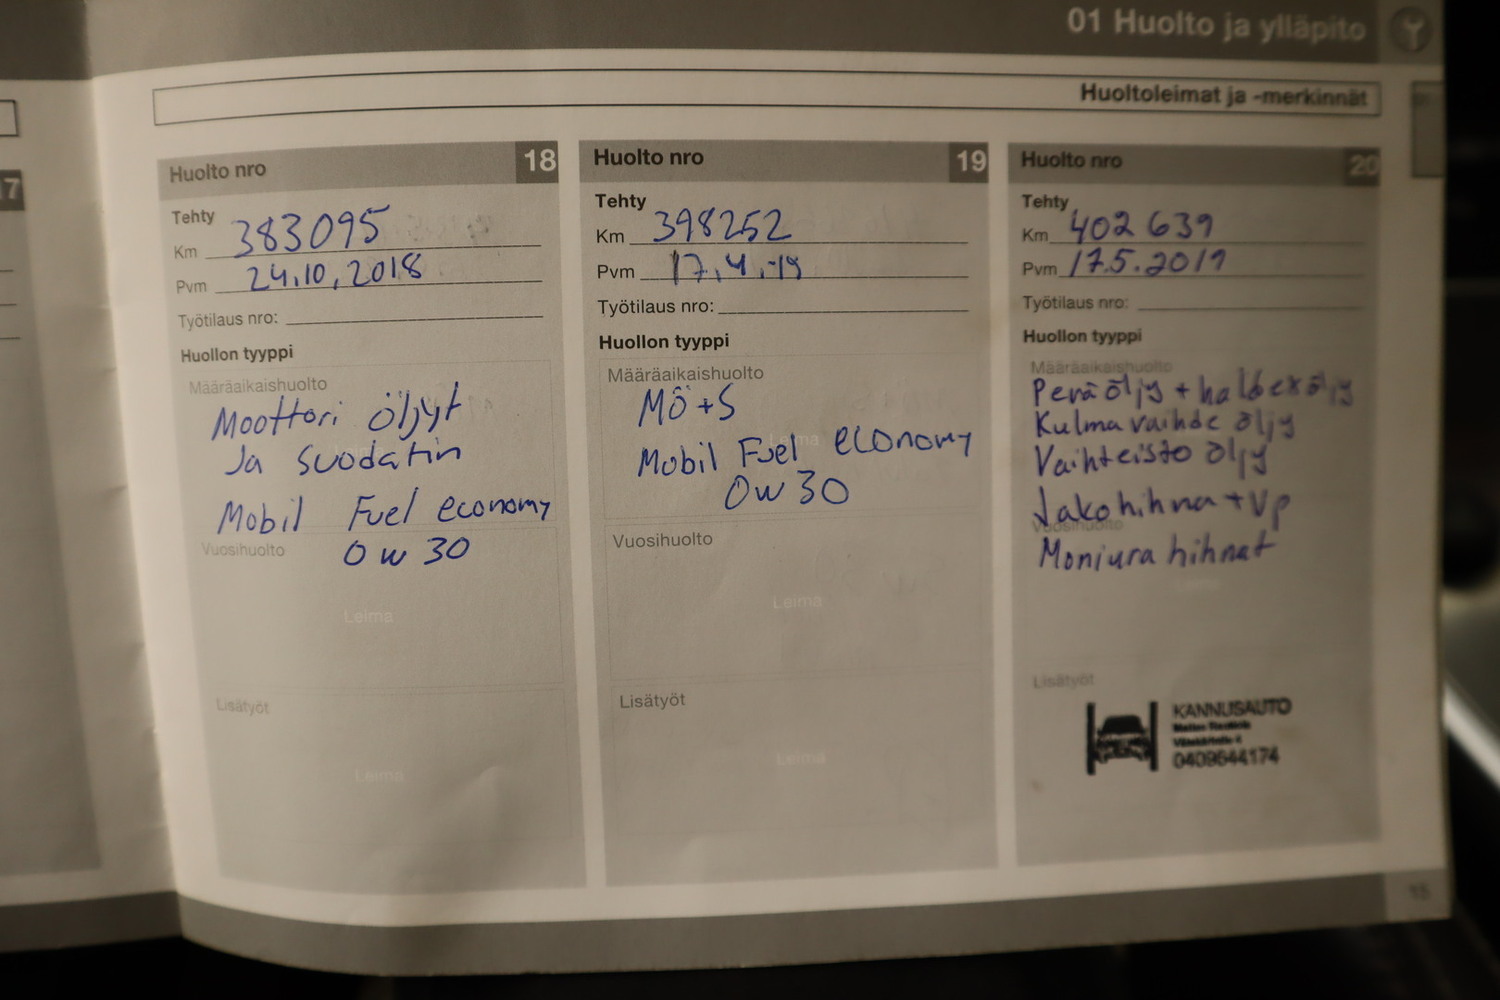 01 Huolto ja ylläpito
Huoltoleimat ja -merkinnät
17
Huolto nro 18
Tehty
Km 383095
Pvm 24.10.2018
Työtilaus nro:
Huollon tyyppi
Määräaikaishuolto
Moottori öljyt
Ja suodatin
Mobil Fuel economy
Vuosihuolto
0w30
Leima
Lisätyöt
Leima
Huolto nro 19
Tehty
Km 398252
Pvm 17.4.-19
Työtilaus nro:
Huollon tyyppi
Määräaikaishuolto
MÖ+S
Leima
Mobil Fuel economy
0w30
Vuosihuolto
Leima
Lisätyöt
Leima
Huolto nro 20
Tehty
Km 402 639
Pvm 17.5.2019
Työtilaus nro:
Huollon tyyppi
Määräaikaishuolto
Perä öljy + haldex öljy
Kulma vaihde öljy
Vaihteisto öljy
Jakohihna + Vp
Vuosihuolto
Moniura hihnat
Lisätyöt
KANNUSAUTO
0409644174